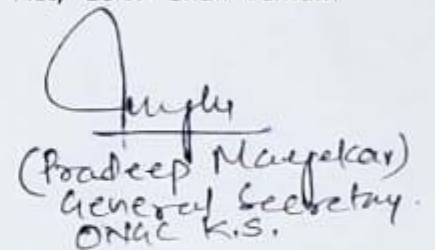 (Pradeep Mayekar)
General Secretary.
ONGC K.S.